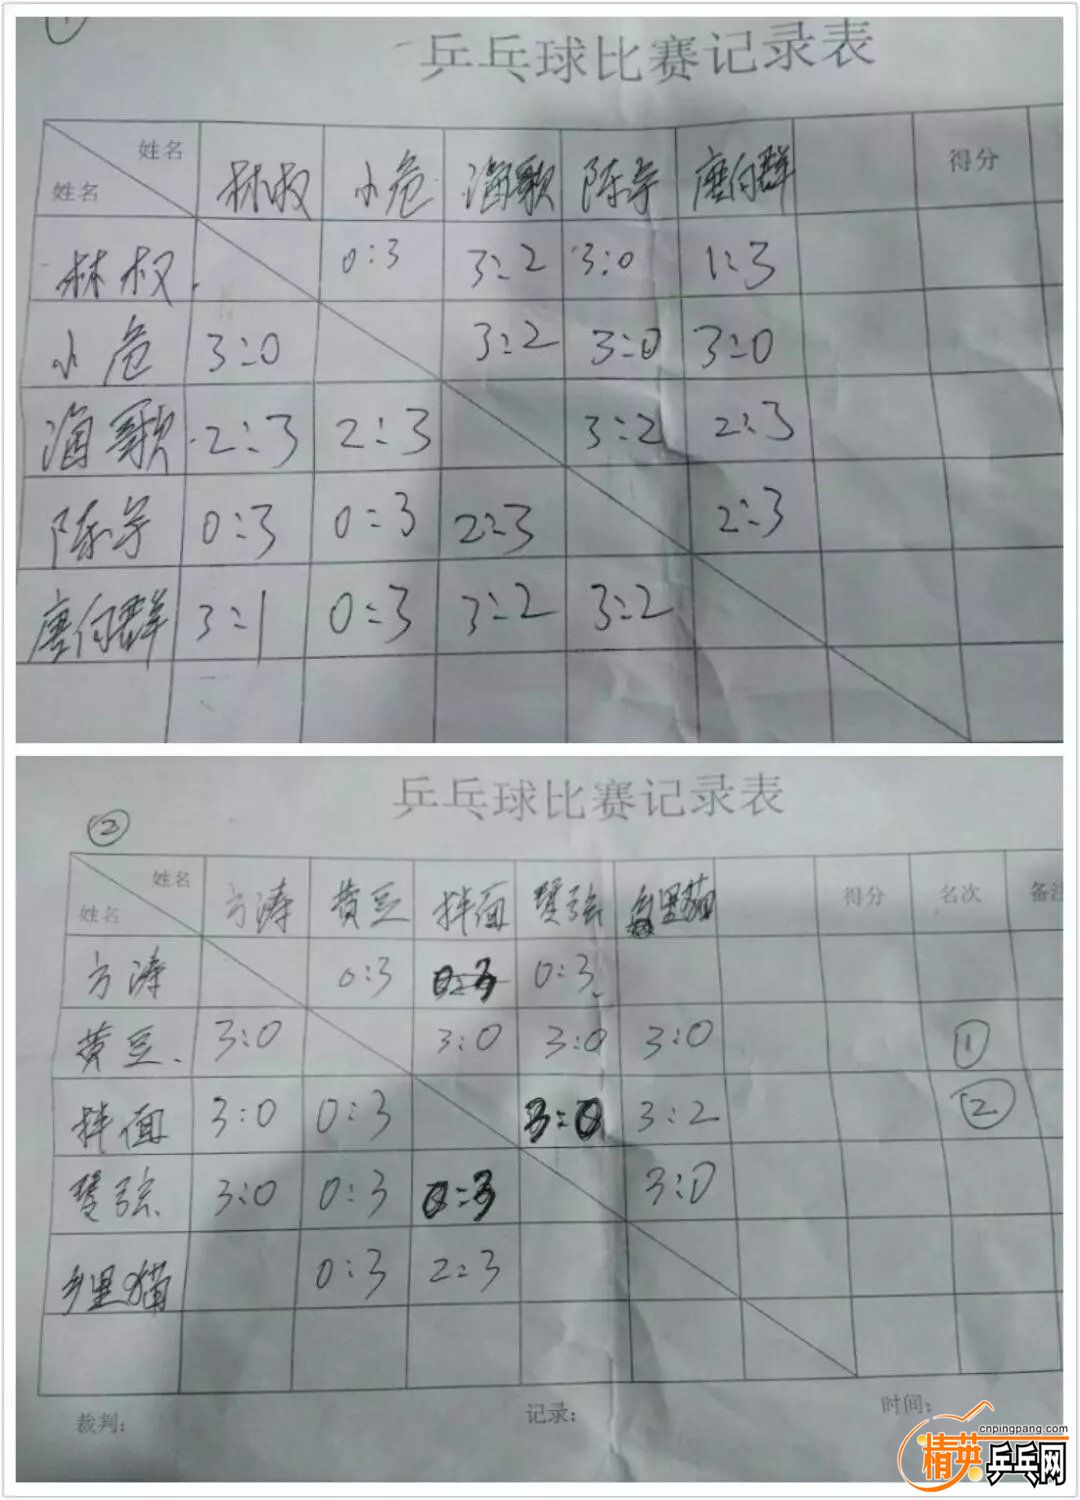 ①
乒乓球比赛记录表
姓名 林权 小危 海歌 陈宇 唐向群 得分
姓名
林权 0:3 3:2 3:0 1:3
小危 3:0 3:2 3:0 3:0
海歌 2:3 2:3 3:2 2:3
陈宇 0:3 0:3 2:3 2:3
唐向群 3:1 0:3 3:2 3:2
乒乓球比赛记录表
②
姓名 方涛 黄豆 拌面 琴弦 乡里猫 得分 名次 备注
姓名
方涛 0:3 0:3 0:3
黄豆 3:0 3:0 3:0 3:0 ①
拌面 3:0 0:3 3:0 3:2 ②
琴弦 3:0 0:3 0:3 3:0
乡里猫 0:3 2:3
裁判: 记录: 时间:
cnpingpang.com
精英乒乓网